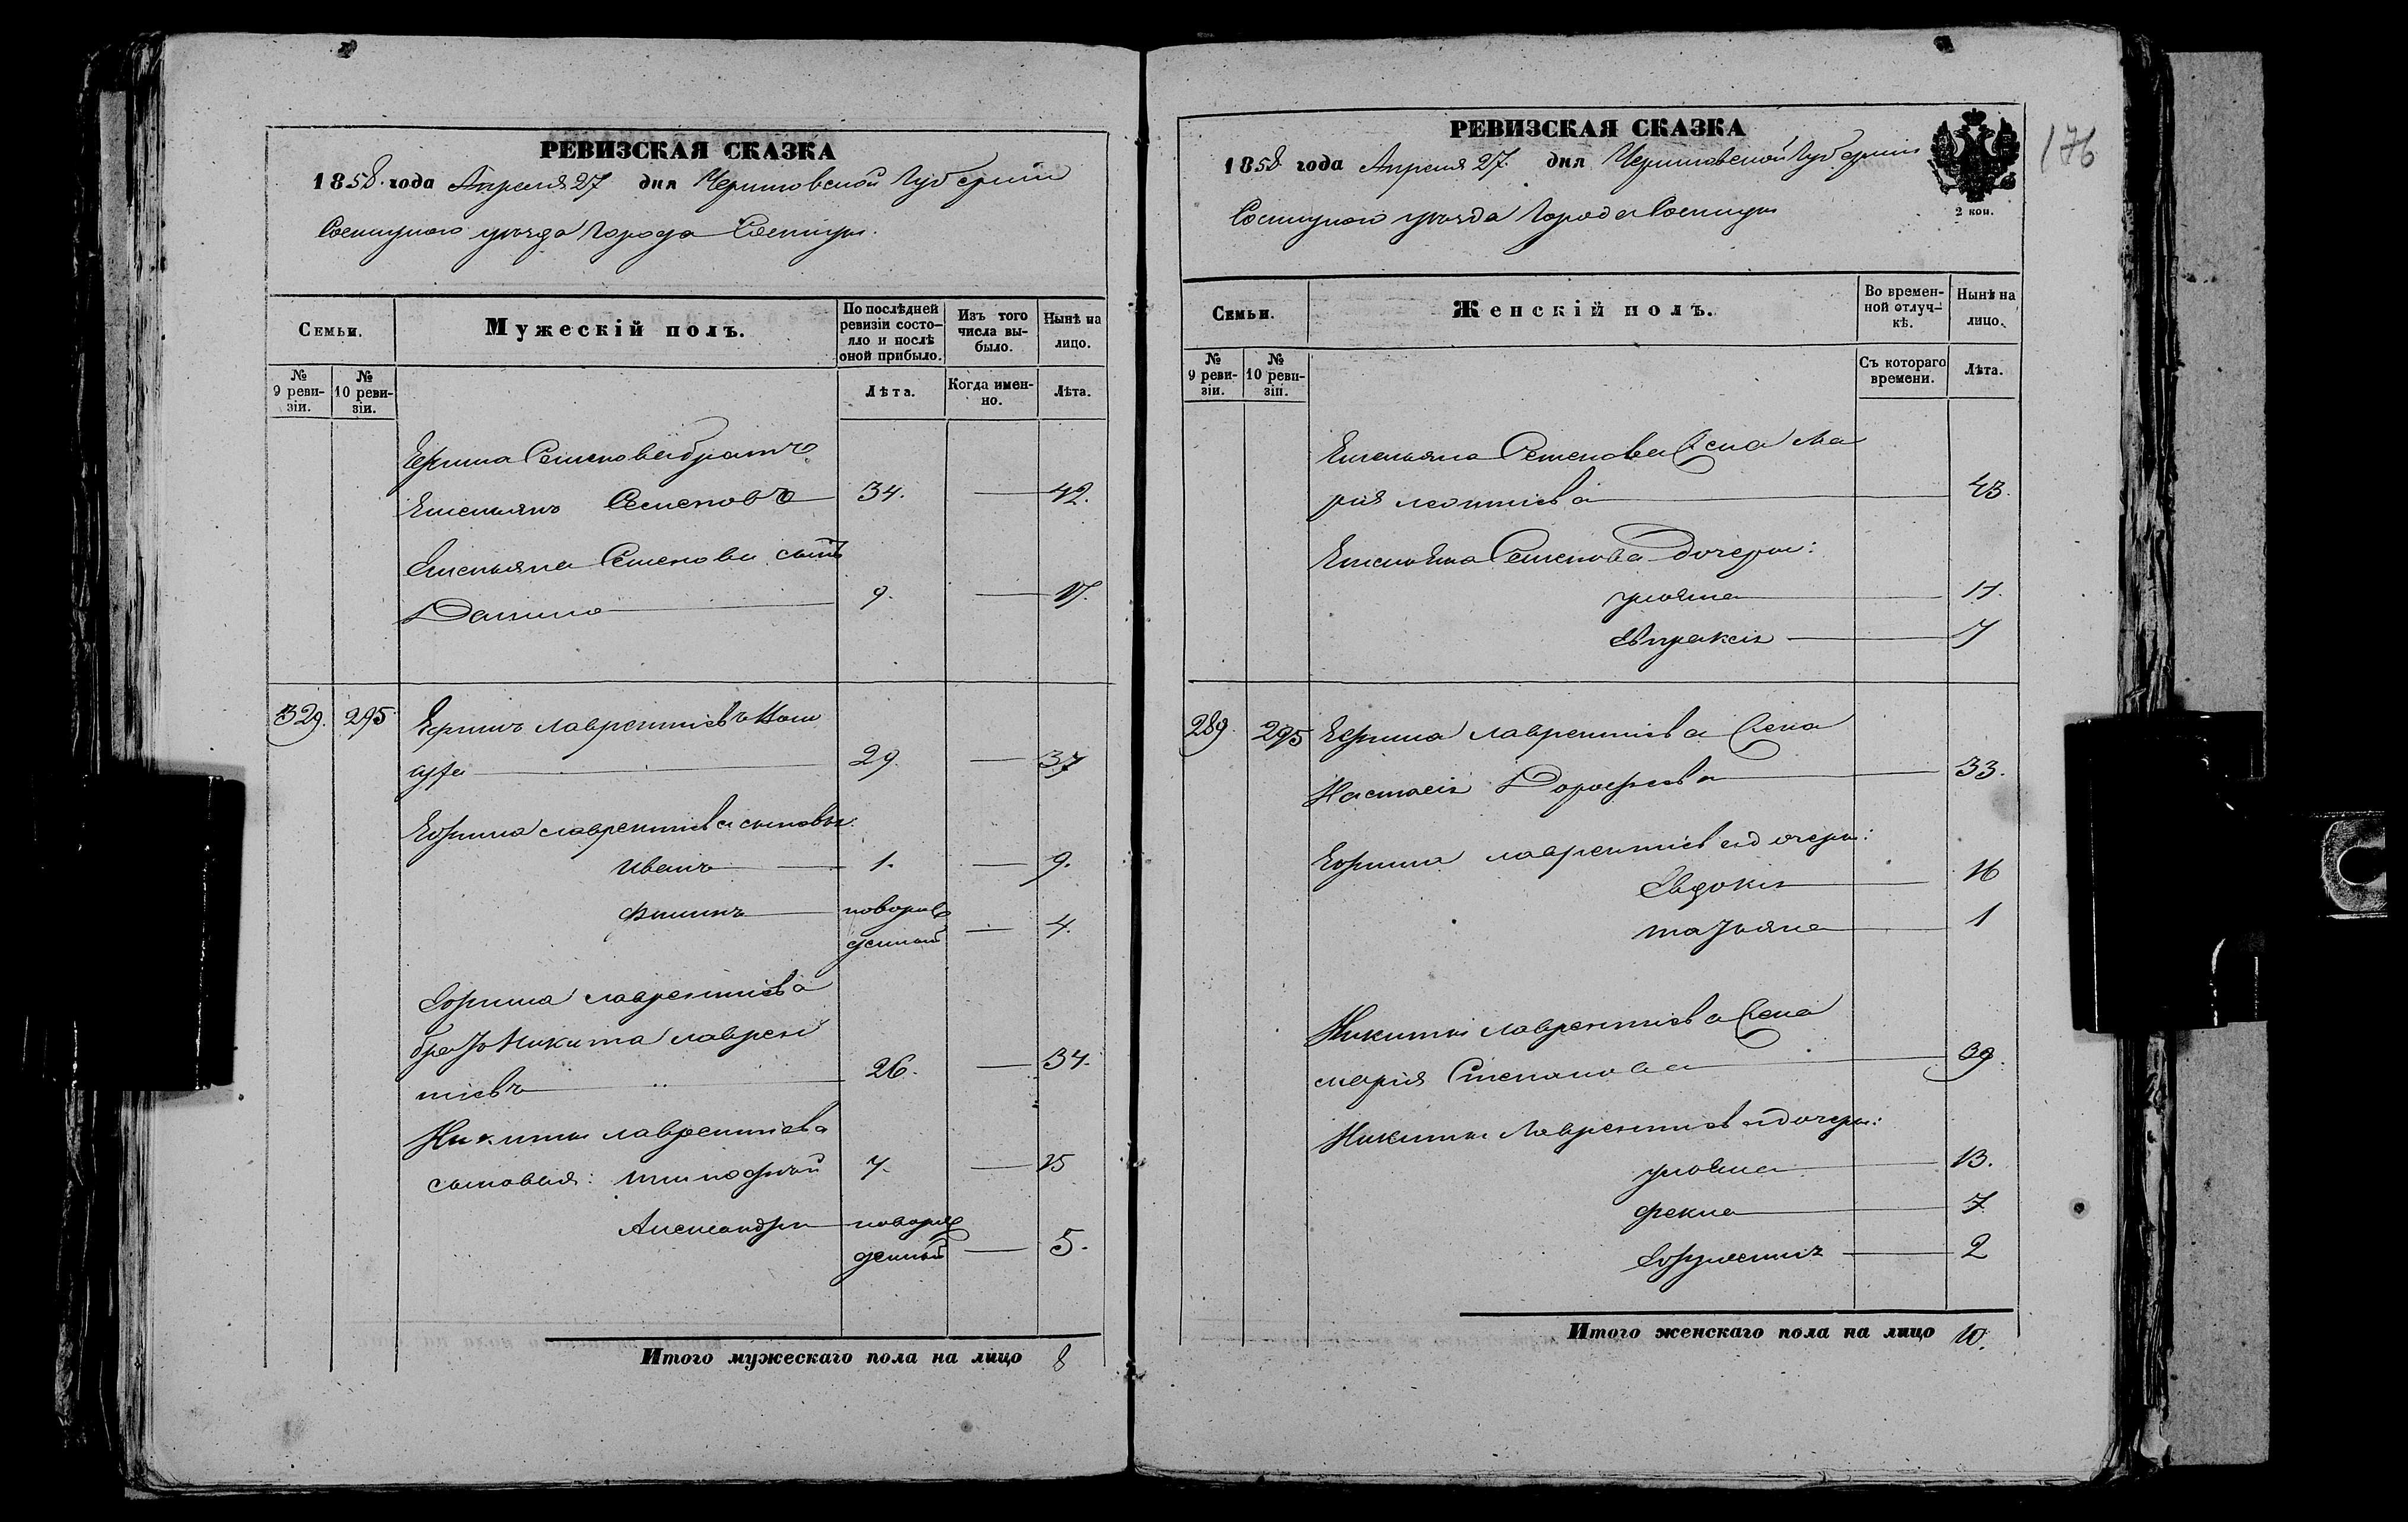 РЕВИЗСКАЯ СКАЗКА
1858. года Апреля 27 дня Черниговской Губернии
Сосницкого уезда Города Сосницы.
Семьи.
Мужескій полъ.
По послѣдней ревизіи состо-
яло и послѣ
оной прибыло.
Изъ того
числа вы-
было.
Нынѣ на
лицо.
№
9 реви-
зіи.
№
10 реви-
зіи.
Лѣта.
Когда имен-
но.
Лѣта.
Ефима Семенова братъ
Емельянъ Семеновъ 34. 42.
Емельяна Семенова сынъ
Данило 9. 17.
329. 295 Ефимъ Лаврентіевъ
29. 37
Ефима Лаврентіева сыновья:
Иванъ 1. 9.
Филипъ новорож
денный 4.
Ефима Лаврентіева
братъ Никита Лаврен
тіевъ 26. 34.
Никиты Лаврентіева
сыновья: Тимофей 7. 15
Александръ новорож
денный 5.
Итого мужескаго пола на лицо 8
РЕВИЗСКАЯ СКАЗКА
1858 года Апреля 27. дня Черниговской Губернии
Сосницкого уезда Города Сосницы
2 коп.
176
Семьи.
Женскій полъ.
Во времен-
ной отлуч-
кѣ.
Нынѣ на
лицо.
№
9 реви-
зіи.
№
10 реви-
зіи.
Съ котораго
времени.
Лѣта.
Емельяна Семенова жена Ма
рія Леонтіева 43.
Емельяна Семенова дочери:
Ульяна 11.
Евпраксія 7
289. 295 Ефима Лаврентіева жена
Настасія Дорофеева 33.
Ефима Лаврентіева дочери:
Евдокія 16
Татьяна 1
Никиты Лаврентіева жена
Марія Степанова 39.
Никиты Лаврентіева дочери:
Ульяна 13.
Фекла 7
Ефросинія 2
Итого женскаго пола на лицо 10.